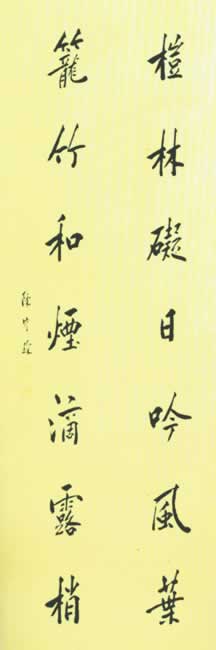 榿林礙日吟風葉
籠竹和煙滴露梢